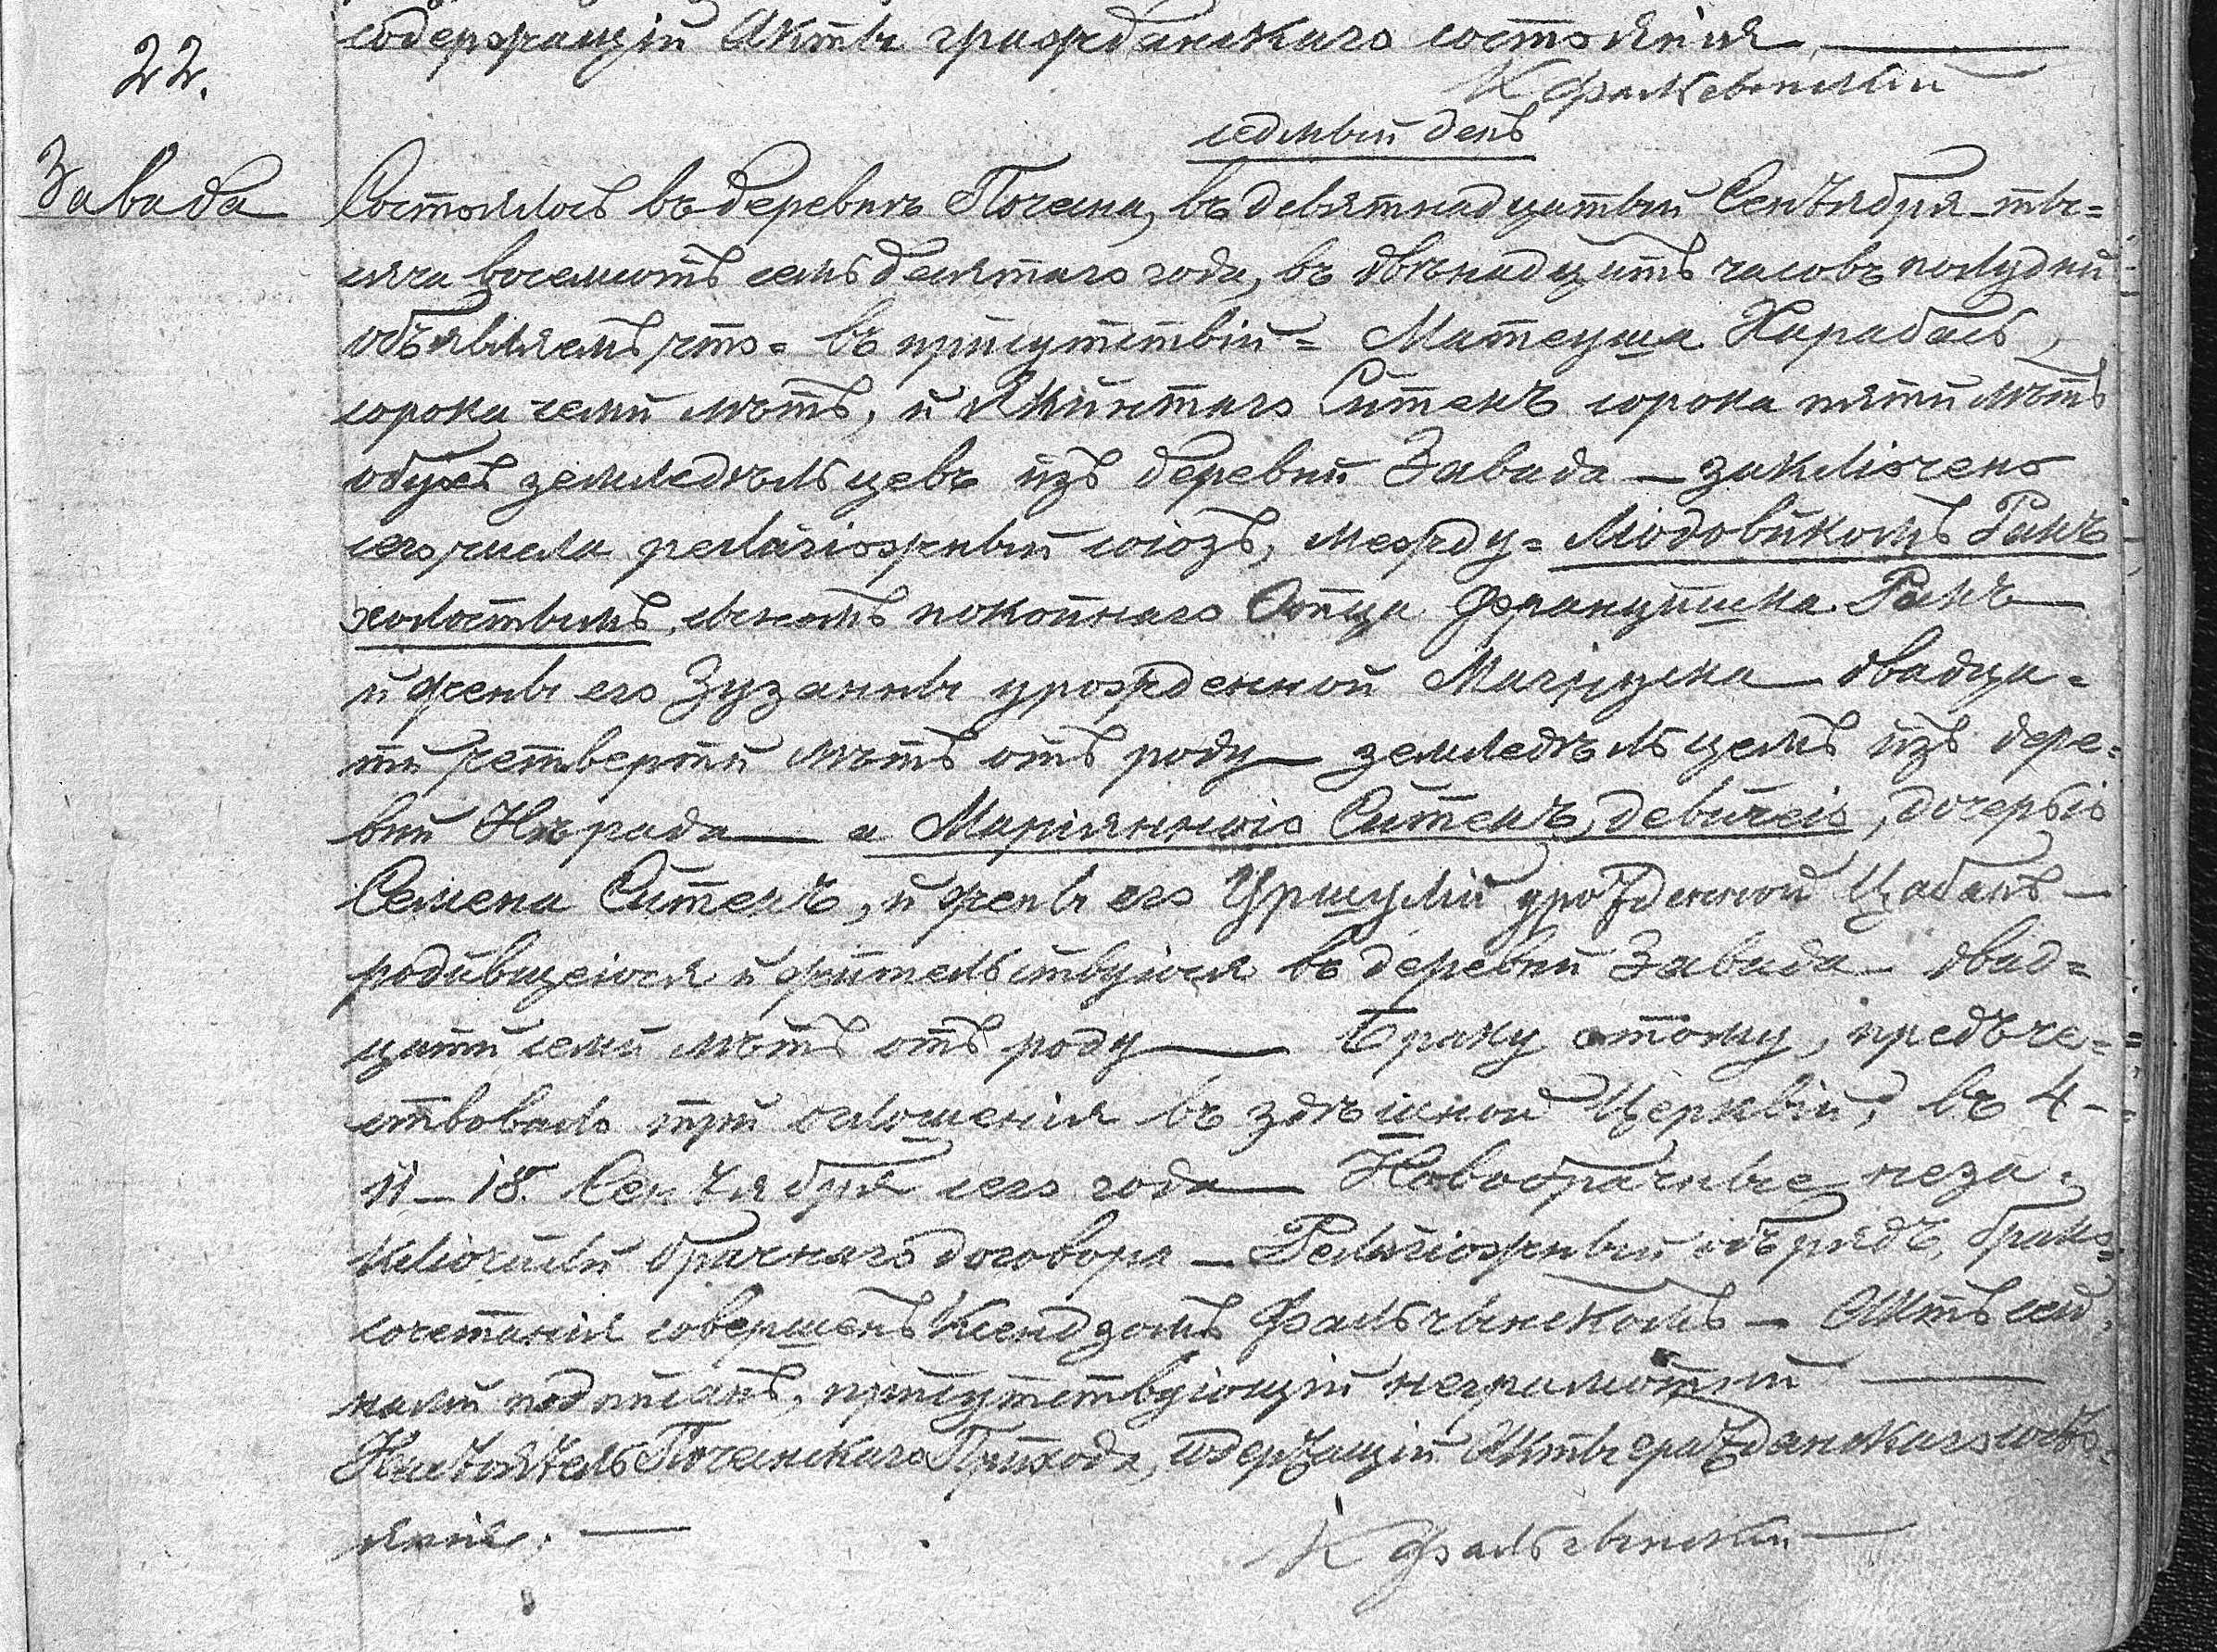 содержащій Акты гражданскаго состоянія
22.
К Фальчевскій
седмый день
Завада
Состоялось въ деревнѣ Почена, въ девятнадцатый Сентября ты=
сяча восемьсотъ семьдесятаго года, въ двѣнадцать часовъ полудни
объявляемъ что = въ присутствіи = Матеуша Харабась,
сорока семи лѣтъ, и Якинтаго Ситекъ сорока пяти лѣтъ
обухъ земледѣльцевъ изъ деревни Завада — заключено
сего числа религіожный союзъ, между = Людовикомъ Ракъ
холостымъ, сыномъ покойнаго Отца Францишка Ракъ
и жены его Зузанны урожденной двадца=
ти четверти лѣтъ отъ роду — земледѣльцемъ изъ дере=
вни а Маріянною Ситекъ, девицею, дочерью
Семена Ситекъ, и жены его Уршулій урожденной Цабань —
родившеюся и жительствуюся въ деревни Завада — двад=
цати семи лѣтъ отъ роду — Браку этому, предъче=
ствовало три оглошенія въ здѣшной Церквіи, въ 4 —
11 — 18. Сентября сего года — Новобрачные неза=
ключили брачнаго договора — Религіожный обърядъ, брако=
сочетанія совершенъ Ксендзомъ Фальчынскомъ — Актъ сей,
нами подписанъ, присутствующій неграмотніи
Настоятель Поченскаго Прихода, содержащій Акты гражданскаго состо=
янія. —
К Фальчевскій